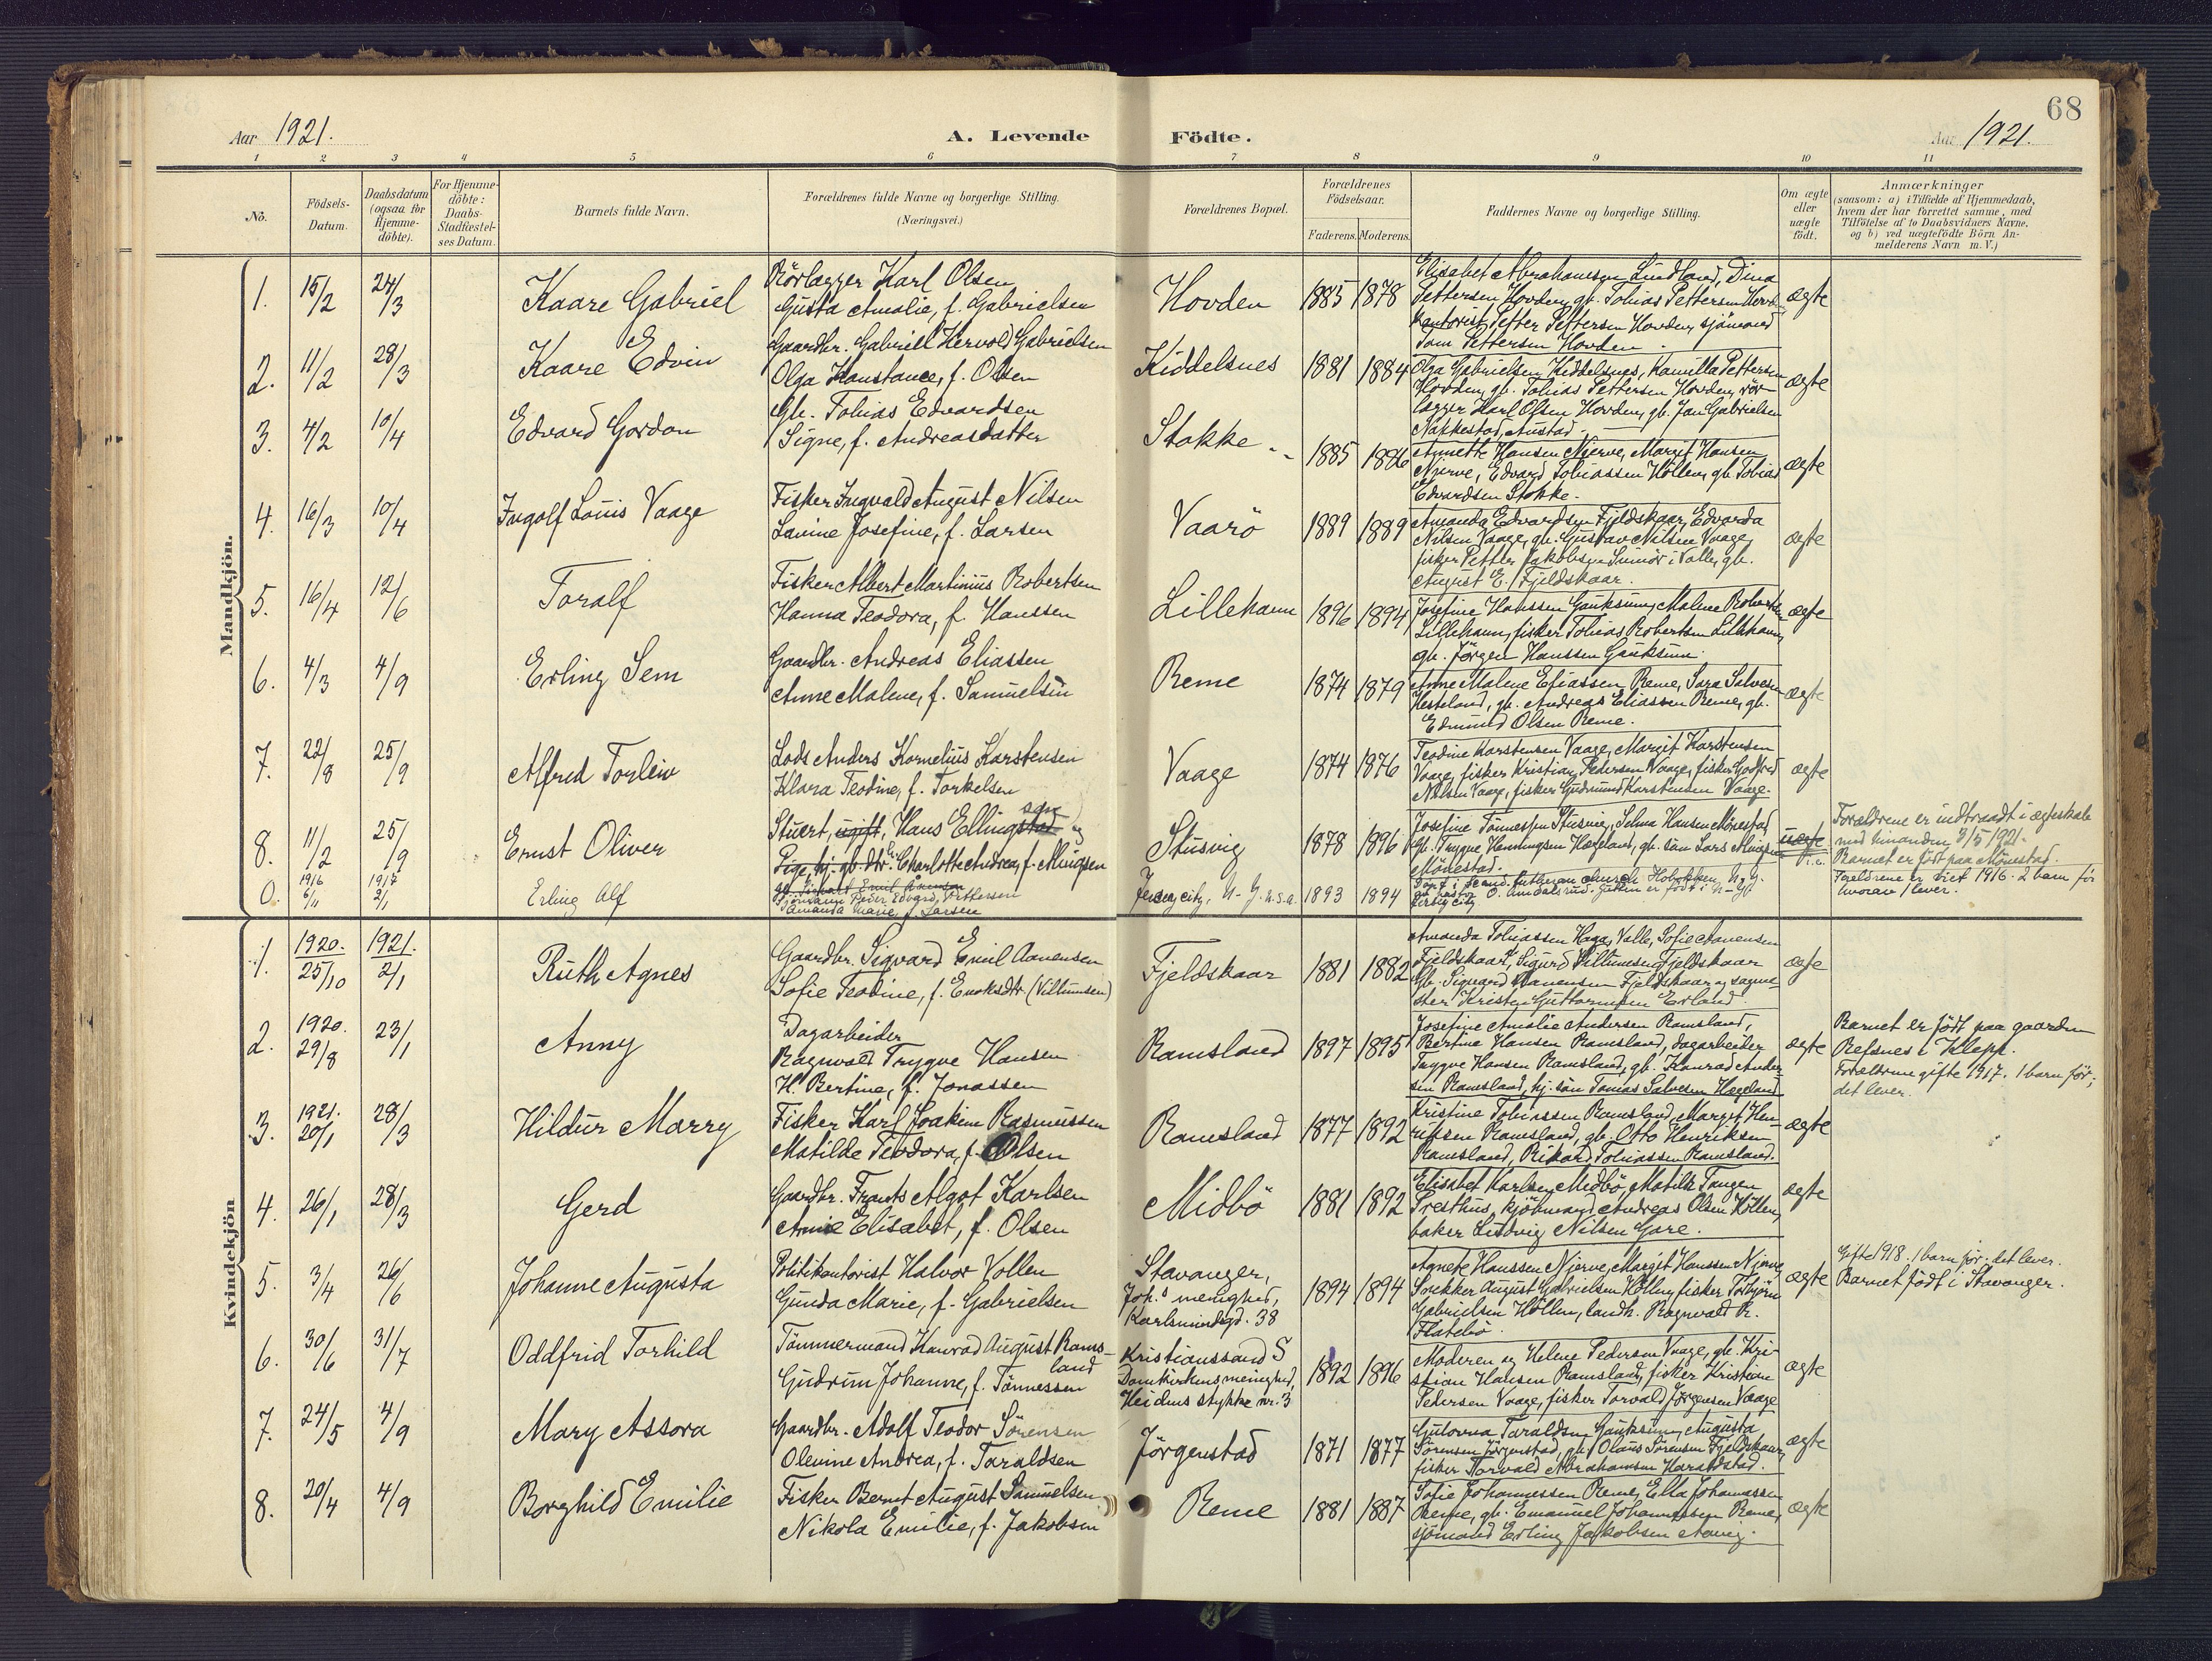 68
Aar 1921.
A. Levende Födte.
Aar 1921.
1 2 3 4 5 6 7 8 9 10 11
No.
Födsels-Datum.
Daabsdatum (ogsaa for Hjemme-döbte).
For Hjemme-döbte: Daabs-Stadfæstel-ses Datum.
Barnets fulde Navn.
Forældrenes fulde Navne og borgerlige Stilling. (Næringsvei.)
Forældrenes Bopæl.
Forældrenes Födselsaar.
Faderens. Moderens.
Faddernes Navne og borgerlige Stilling.
Om ægte eller uægte födt.
Anmærkninger
(saasom: a) i Tilfælde af Hjemmedaab,
hvem der har forrettet samme, med
Tilföielse af to Daabsvidners Navne.
og b) ved uægtefödte Börn An-
melderens Navn m. V.)
Mandkjön.
1. 15/2 24/3 Kaare Gabriel
Rörlægger Karl Olsen
Gusta Amalie, f. Gabrielsen
Hovden 1885 1878
Elisabet Abrahamsen Lindland, Dina
Pettersen Hovden, gb. Tobias Pettersen Hovd.
kantorist Petter Pettersen Hovden, sjömand
Tom Pettersen Hovden.
ægte
2. 11/2 28/3 Kaare Edvin
Gaardbr. Gabriell Hervold Gabrielsen
Olga Konstance, f. Olsen
Kiddelsnes 1881 1884
Olga Gabrielsen Kiddelsnes, Kamilla Pettersen
Hovden, gb. Tobias Pettersen Hovden, rör-
lægger Karl Olsen Hovden, gb. Jan Gabrielsen
Nakkestad, Austad.
ægte
3. 4/2 10/4 Edvard Gordon
Gb. Tobias Edvardsen
Signe, f. Andreasdatter
Stokke 1885 1896
Annette Hansen Njerve, Margit Hansen
Njerve, Edvard Tobiassen Höllen, gb. Tobias
Edvardsen Stokke.
ægte
4. 16/3 10/4 Ingolf Louis Vaage
Fisker Ingvald August Nilsen
Lavine Josefine, f. Larsen
Vaarö 1889 1889
Amanda Edvardsen Fjeldskaar, Edvarda
Nilsen Vaage, gb. Gustav Nilsen Vaage,
fisker Petter Jakobsen i Valle, gb.
August E. Fjeldskaar.
ægte
5. 16/4 12/6 Toralf
Fisker Albert Martinius Robertsen
Hanna Teodora, f. Hanssen
Lillehavn 1896 1894
Josefine Hanssen Gauksum, Malene Roberts.
Lillehavn, fisker Tobias Robertsen Lillehavn,
gb. Jörgen Hanssen Gauksum.
ægte
6. 4/3 4/9 Erling Sem
Gaardbr. Andreas Eliassen
Anne Malene, f. Samuelsen
Reme 1874 1879
Anne Malene Eliassen Reme, Sara Salvesen
Hesteland, gb. Andreas Eliassen Reme, gb.
Edmund Olsen Reme.
ægte
7. 22/8 25/9 Alfred Torleiv
Lods Anders Kornelius Karstensen
Klara Teodine, f. Torkelsen
Vaage 1874 1876
Teodine Karstensen Vaage, Margit Karstensen
Vaage, fisker Kristian Pedersen Vaage, fisker Godtfred
Nilsen Vaage, fisker Gudmund Karstensen Vaage.
ægte
8. 11/2 25/9 Ernst Oliver
Stuert, ugift, Hans Ellingstad og
Pige, hj. gb. dtr. Charlotte Andrea, f.
Stusvig 1878 1896
Josefine Tönnessen Stusvig, Selma Hansen Mönestad,
gb. Trygve Henningsen Hægeland, gb. sön Lars
Mönestad.
uægte
Forældrene er indtraadt i ægteskab
med hinanden 8/5 1921.
Barnet er födt paa Mönestad.
0. 1916 6/11 1917 2/1 Erling Alf
Sjömann Peder Edvard Pettersen
Amanda Marie, f. Larsen
Jersey city, N-Y. U.S.A. 1893 1894
Döpt i Scand. Lutheran church Hoboken, N.Y.
Jersey city
Foreldrene er viet 1916. 2 barn för
hvorav 1 lever.
Kvindekjön
1. 1920. 25/10 1921. 2/1 Ruth Agnes
Gaardbr. Sigvard Emil Aanensen
Sofie Teodine, f. Enoksdtr. (Villumsen)
Fjeldskaar 1881 1882
Amanda Tobiassen Haga, Valle, Sofie Aanensen
Fjeldskaar, Sigurd Villumsen Fjeldskaar
Gb. Sigvard Aanensen Fjeldskaar og
Kristen Guttormsen Erland.
ægte
2. 1920. 29/8 23/1 Anny
Dagarbeider
Ragnvald Trygve Hansen
H. Bertine, f. Jonassen
Ramsland 1897 1895
Josefine Amalie Andersen Ramsland,
Bertine Hansen Ramsland, dagarbeider
Trygve Hansen Ramsland, gb. Konrad Ander-
sen Ramsland, hj. sön Tomas Salvesen Hægeland
ægte
Barnet er födt paa gaarden
Refsnes i Klepp.
Forældrene gifte 1917. 1 barn för;
det lever.
3. 1921. 20/1 28/3 Hildur Marry
Fisker Karl Joakim Rasmussen
Matilde Teodora, f. Olsen
Ramsland 1877 1892
Kristine Tobiassen Ramsland, Margit Hen-
riksen Ramsland, gb. Otto Henriksen
Ramsland, Rikard Tobiassen Ramsland.
ægte
4. 26/1 28/3 Gerd
Gaardbr. Frants Algot Karlsen
Anne Elisabet, f. Olsen
Midbö 1881 1892
Elisabet Karlsen Midbö, Matilde Tangen
Presthus, kjöbmand Andreas Olsen Höllen,
baker Ludvig Nilsen Gare.
ægte
5. 3/4 26/6 Johanne Augusta
Politikantorist Halvor Vollen
Gunda Marie, f. Gabrielsen
Stavanger,
Joh.s menighed,
Karlsmindegd. 38
1894 1894
Agnete Hanssen Njerve, Margit Hanssen Njerve
Snekker August Gabrielsen Höllen, fisker Torbjörn
Gabrielsen Höllen, landh. Ragnvald R.
Flatebö.
ægte
Gifte 1918. 1 barn för; det lever.
Barnet födt i Stavanger.
6. 30/6 31/7 Oddfrid Torhild
Tömmermand Konrad August Rams-
land
Gudrun Johanne, f. Tönnessen
Kristianssand S
Domkirkens menighed,
Heidens stykke nr. 3
1892 1896
Moderen og Helene Pedersen Vaage, gb. Kri-
stian Hansen Ramsland, fisker Kristian
Pedersen Vaage, fisker Torvald Jörgensen Vaage
ægte
7. 24/5 4/9 Mary Assora
Gaardbr. Adolf Teodor Sörensen
Olenine Andrea, f. Taraldsen
Jörgenstad 1871 1877
Taraldsen Gauksum, Augusta
Sörensen Jörgenstad, gb. Olaus Sörensen Fjeldskaar,
fisker Torvald Abrahamsen Haraldstad.
ægte
8. 20/4 4/9 Borghild Emilie
Fisker Bernt August Samuelsen
Nikola Emilie, f. Jakobsen
Reme 1881 1887
Sofie Johannessen Reme, Ella Johannessen
Reme, gb. Emanuel Johannessen Reme,
sjömand Erling Jakobsen Aavig.
ægte